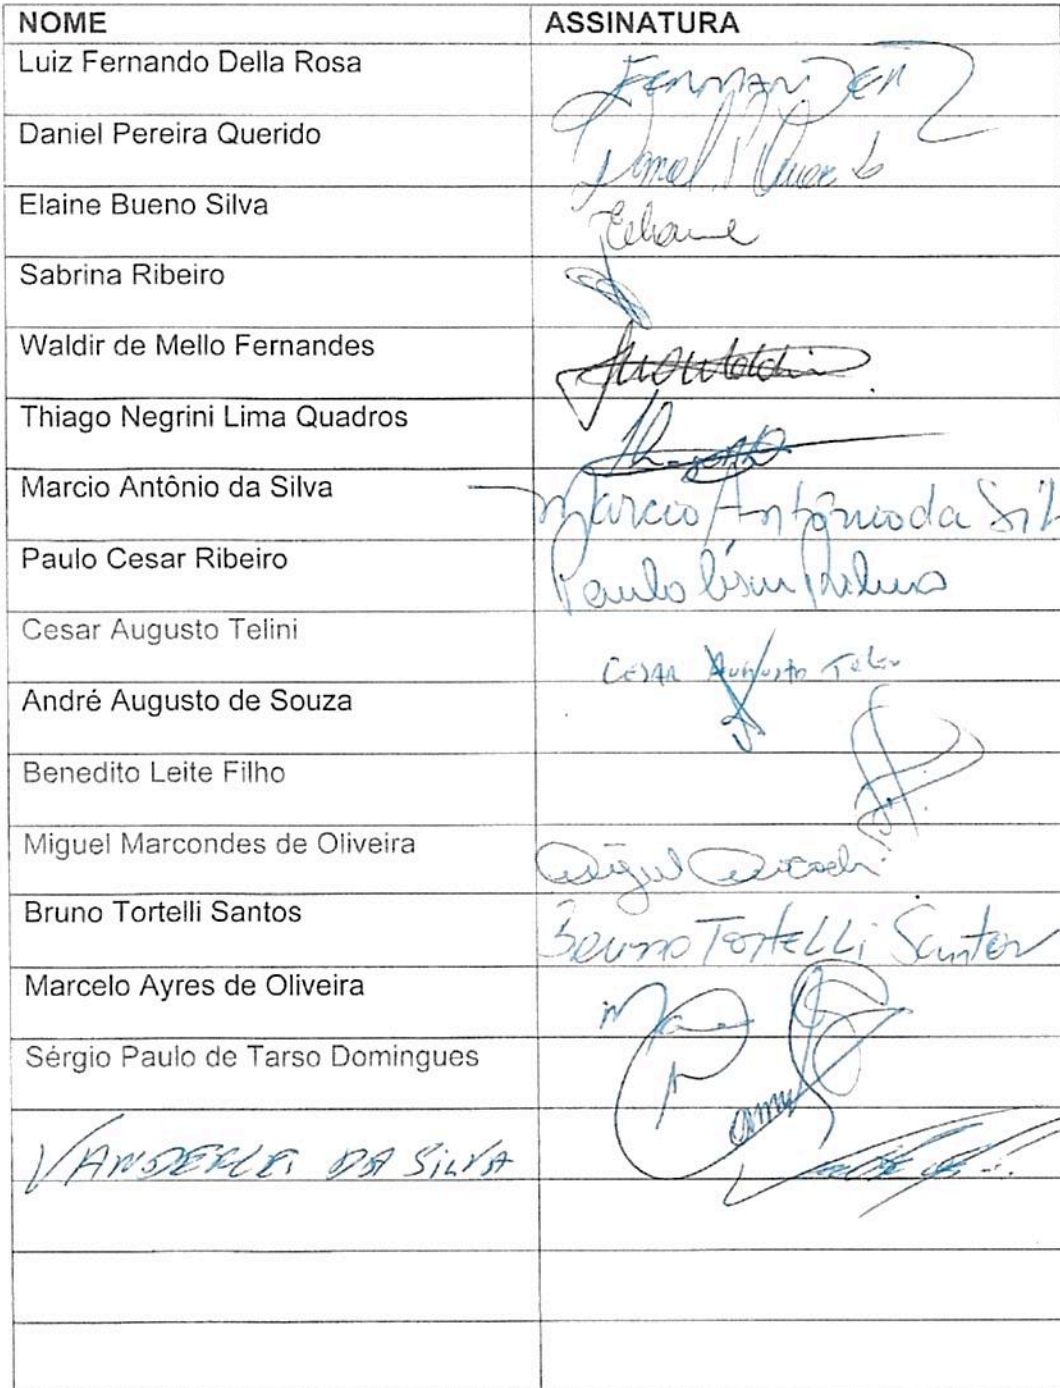 NOME ASSINATURA
Luiz Fernando Della Rosa
Daniel Pereira Querido
Elaine Bueno Silva
Sabrina Ribeiro
Waldir de Mello Fernandes
Thiago Negrini Lima Quadros
Marcio Antônio da Silva Marcio Antônio da Sil
Paulo Cesar Ribeiro Paulo César Ribeiro
Cesar Augusto Telini CESAR AUGUSTO
André Augusto de Souza
Benedito Leite Filho
Miguel Marcondes de Oliveira Miguel
Bruno Tortelli Santos Bruno TortELLi Santos
Marcelo Ayres de Oliveira
Sérgio Paulo de Tarso Domingues
VANDERLEI DA SILVA